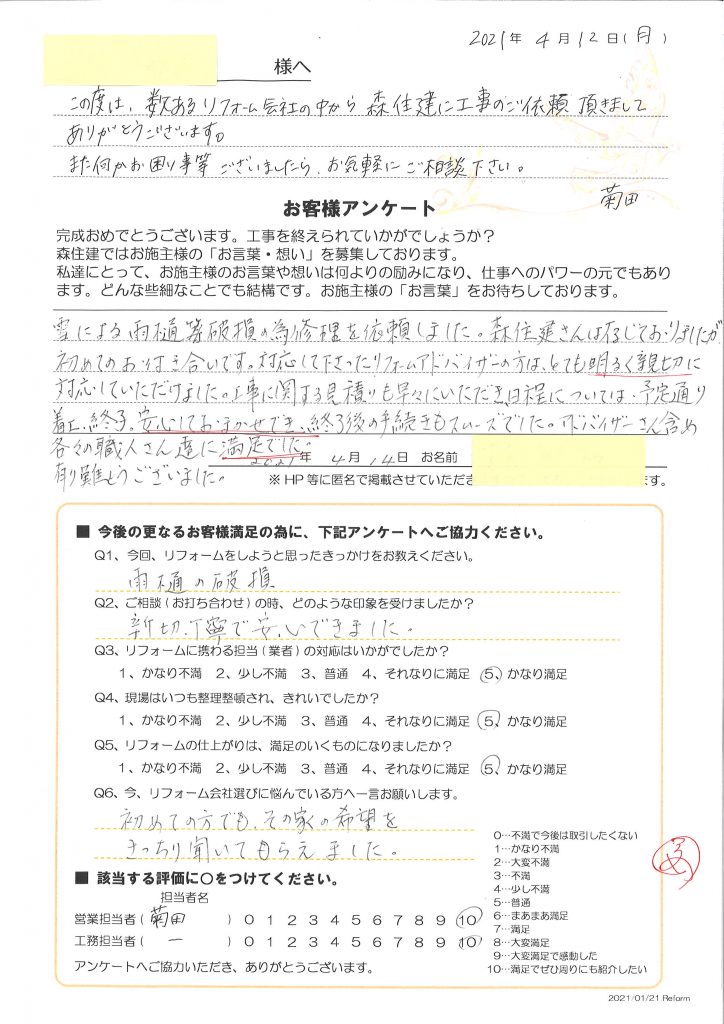 2021年 4月 12日(月)
様へ
この度は、数あるリフォーム会社の中から 森住建に工事のご依頼 頂きまして
ありがとうございます。
また何かお困り事等 ございましたら、お気軽にご相談下さい。
菊田
お客様アンケート
完成おめでとうございます。工事を終えられていかがでしょうか？
森住建ではお施主様の「お言葉・想い」を募集しております。
私達にとって、お施主様のお言葉や想いは何よりの励みになり、仕事へのパワーの元でもあり
ます。どんな些細なことでも結構です。お施主様の「お言葉」をお待ちしております。
雪による雨樋等破損の為修理を依頼しました。森住建さんは存じておりましたが
初めてのお付き合いです。対応して下さったリフォームアドバイザーの方は、とても明るく親切に
対応していただけました。工事に関する見積りも早々にいただき日程については、予定通り
着工、終了。安心しておまかせでき、終了後の手続きもスムーズでした。アドバイザーさん含め
各々の職人さん達に満足でした。
2021年 4月 14日 お名前
有り難とうございました。
※HP等に匿名で掲載させていただき
ます。
■ 今後の更なるお客様満足の為に、下記アンケートへご協力ください。
Q1、今回、リフォームをしようと思ったきっかけをお教えください。
雨樋の破損
Q2、ご相談（お打ち合わせ）の時、どのような印象を受けましたか？
新切、丁寧で安心できました。
Q3、リフォームに携わる担当（業者）の対応はいかがでしたか？
1、かなり不満 2、少し不満 3、普通 4、それなりに満足 5、かなり満足
Q4、現場はいつも整理整頓され、きれいでしたか？
1、かなり不満 2、少し不満 3、普通 4、それなりに満足 5、かなり満足
Q5、リフォームの仕上がりは、満足のいくものになりましたか？
1、かなり不満 2、少し不満 3、普通 4、それなりに満足 5、かなり満足
Q6、今、リフォーム会社選びに悩んでいる方へ一言お願いします。
初めての方でも、その家の希望を
きっちり聞いてもらえました。
■ 該当する評価に○をつけてください。
担当者名
営業担当者（ 菊田 ）0 1 2 3 4 5 6 7 8 9 10
工務担当者（ ー ）0 1 2 3 4 5 6 7 8 9 10
アンケートへご協力いただき、ありがとうございます。
0…不満で今後は取引したくない
1…かなり不満
2…大変不満
3…不満
4…少し不満
5…普通
6…まあまあ満足
7…満足
8…大変満足
9…大変満足で感動した
10…満足でぜひ周りにも紹介したい
2021/01/21 Reform